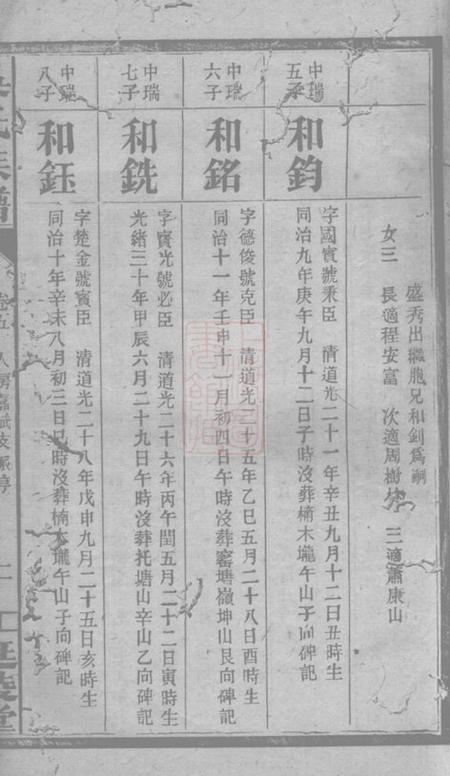 盛秀出繼胞兄和釗爲嗣
女三　長適程安富　次適周樹　三適蕭康山
中瑞
五子
和鈞
字國賓號秉臣　清道光二十一年辛丑九月十二日丑時生
同治九年庚午九月十二日子時沒葬楠木壠午山子向碑記
中瑞
六子
和銘
字德俊號克臣　清道光二十五年乙巳五月二十八日酉時生
同治十一年壬申十一月初四日午時沒葬窰塘嶺坤山艮向碑記
中瑞
七子
和銑
字賓光號必臣　清道光二十六年丙午閏五月二十二日寅時生
光緒三十年甲辰六月二十九日午時沒葬托塘山辛山乙向碑記
中瑞
八子
和鈺
字楚金號賓臣　清道光二十八年戊申九月二十五日亥時生
同治十年辛未八月初三日巳時沒葬楠木壠午山子向碑記
氏族譜
卷五　人房嘉斌支派亭